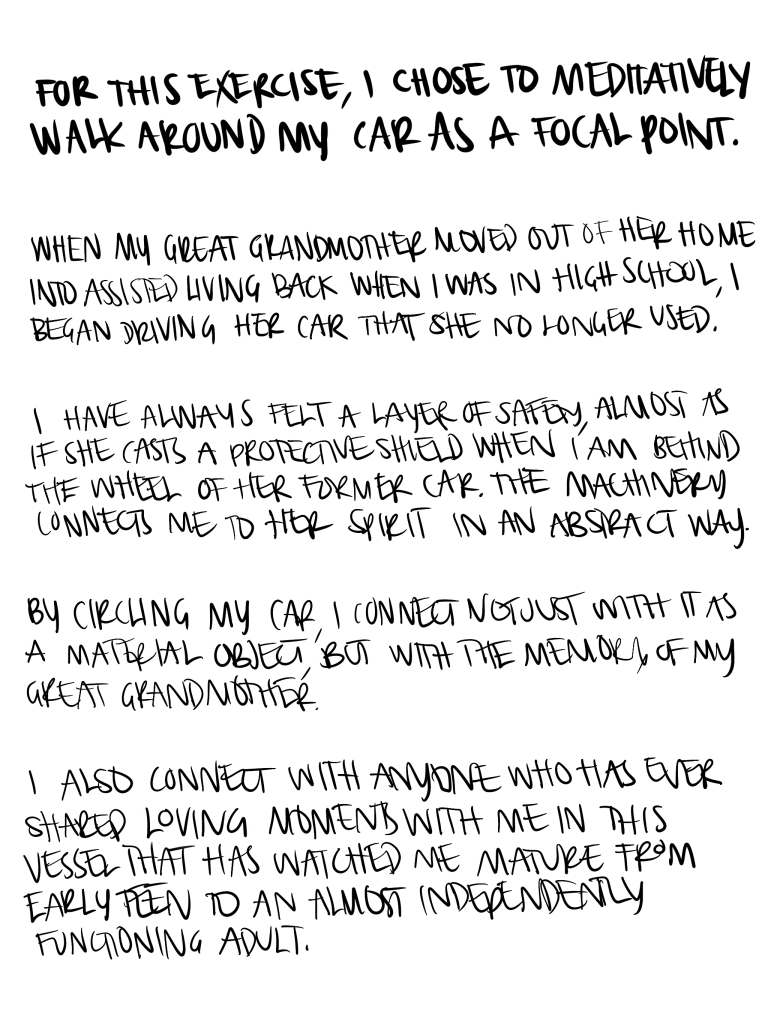 FOR THIS EXERCISE, I CHOSE TO MEDITATIVELY
WALK AROUND MY CAR AS A FOCAL POINT.
WHEN MY GREAT GRANDMOTHER MOVED OUT OF HER HOME
INTO ASSISTED LIVING BACK WHEN I WAS IN HIGH SCHOOL, I
BEGAN DRIVING HER CAR THAT SHE NO LONGER USED.
I HAVE ALWAYS FELT A LAYER OF SAFETY, ALMOST AS
IF SHE CASTS A PROTECTIVE SHIELD WHEN I AM BEHIND
THE WHEEL OF HER FORMER CAR. THE MACHINERY
CONNECTS ME TO HER SPIRIT IN AN ABSTRACT WAY.
BY CIRCLING MY CAR, I CONNECT NOT JUST WITH IT AS
A MATERIAL OBJECT, BUT WITH THE MEMORY OF MY
GREAT GRANDMOTHER.
I ALSO CONNECT WITH ANYONE WHO HAS EVER
SHARED LOVING MOMENTS WITH ME IN THIS
VESSEL THAT HAS WATCHED ME MATURE FROM
EARLY TEEN TO AN ALMOST INDEPENDENTLY
FUNCTIONING ADULT.